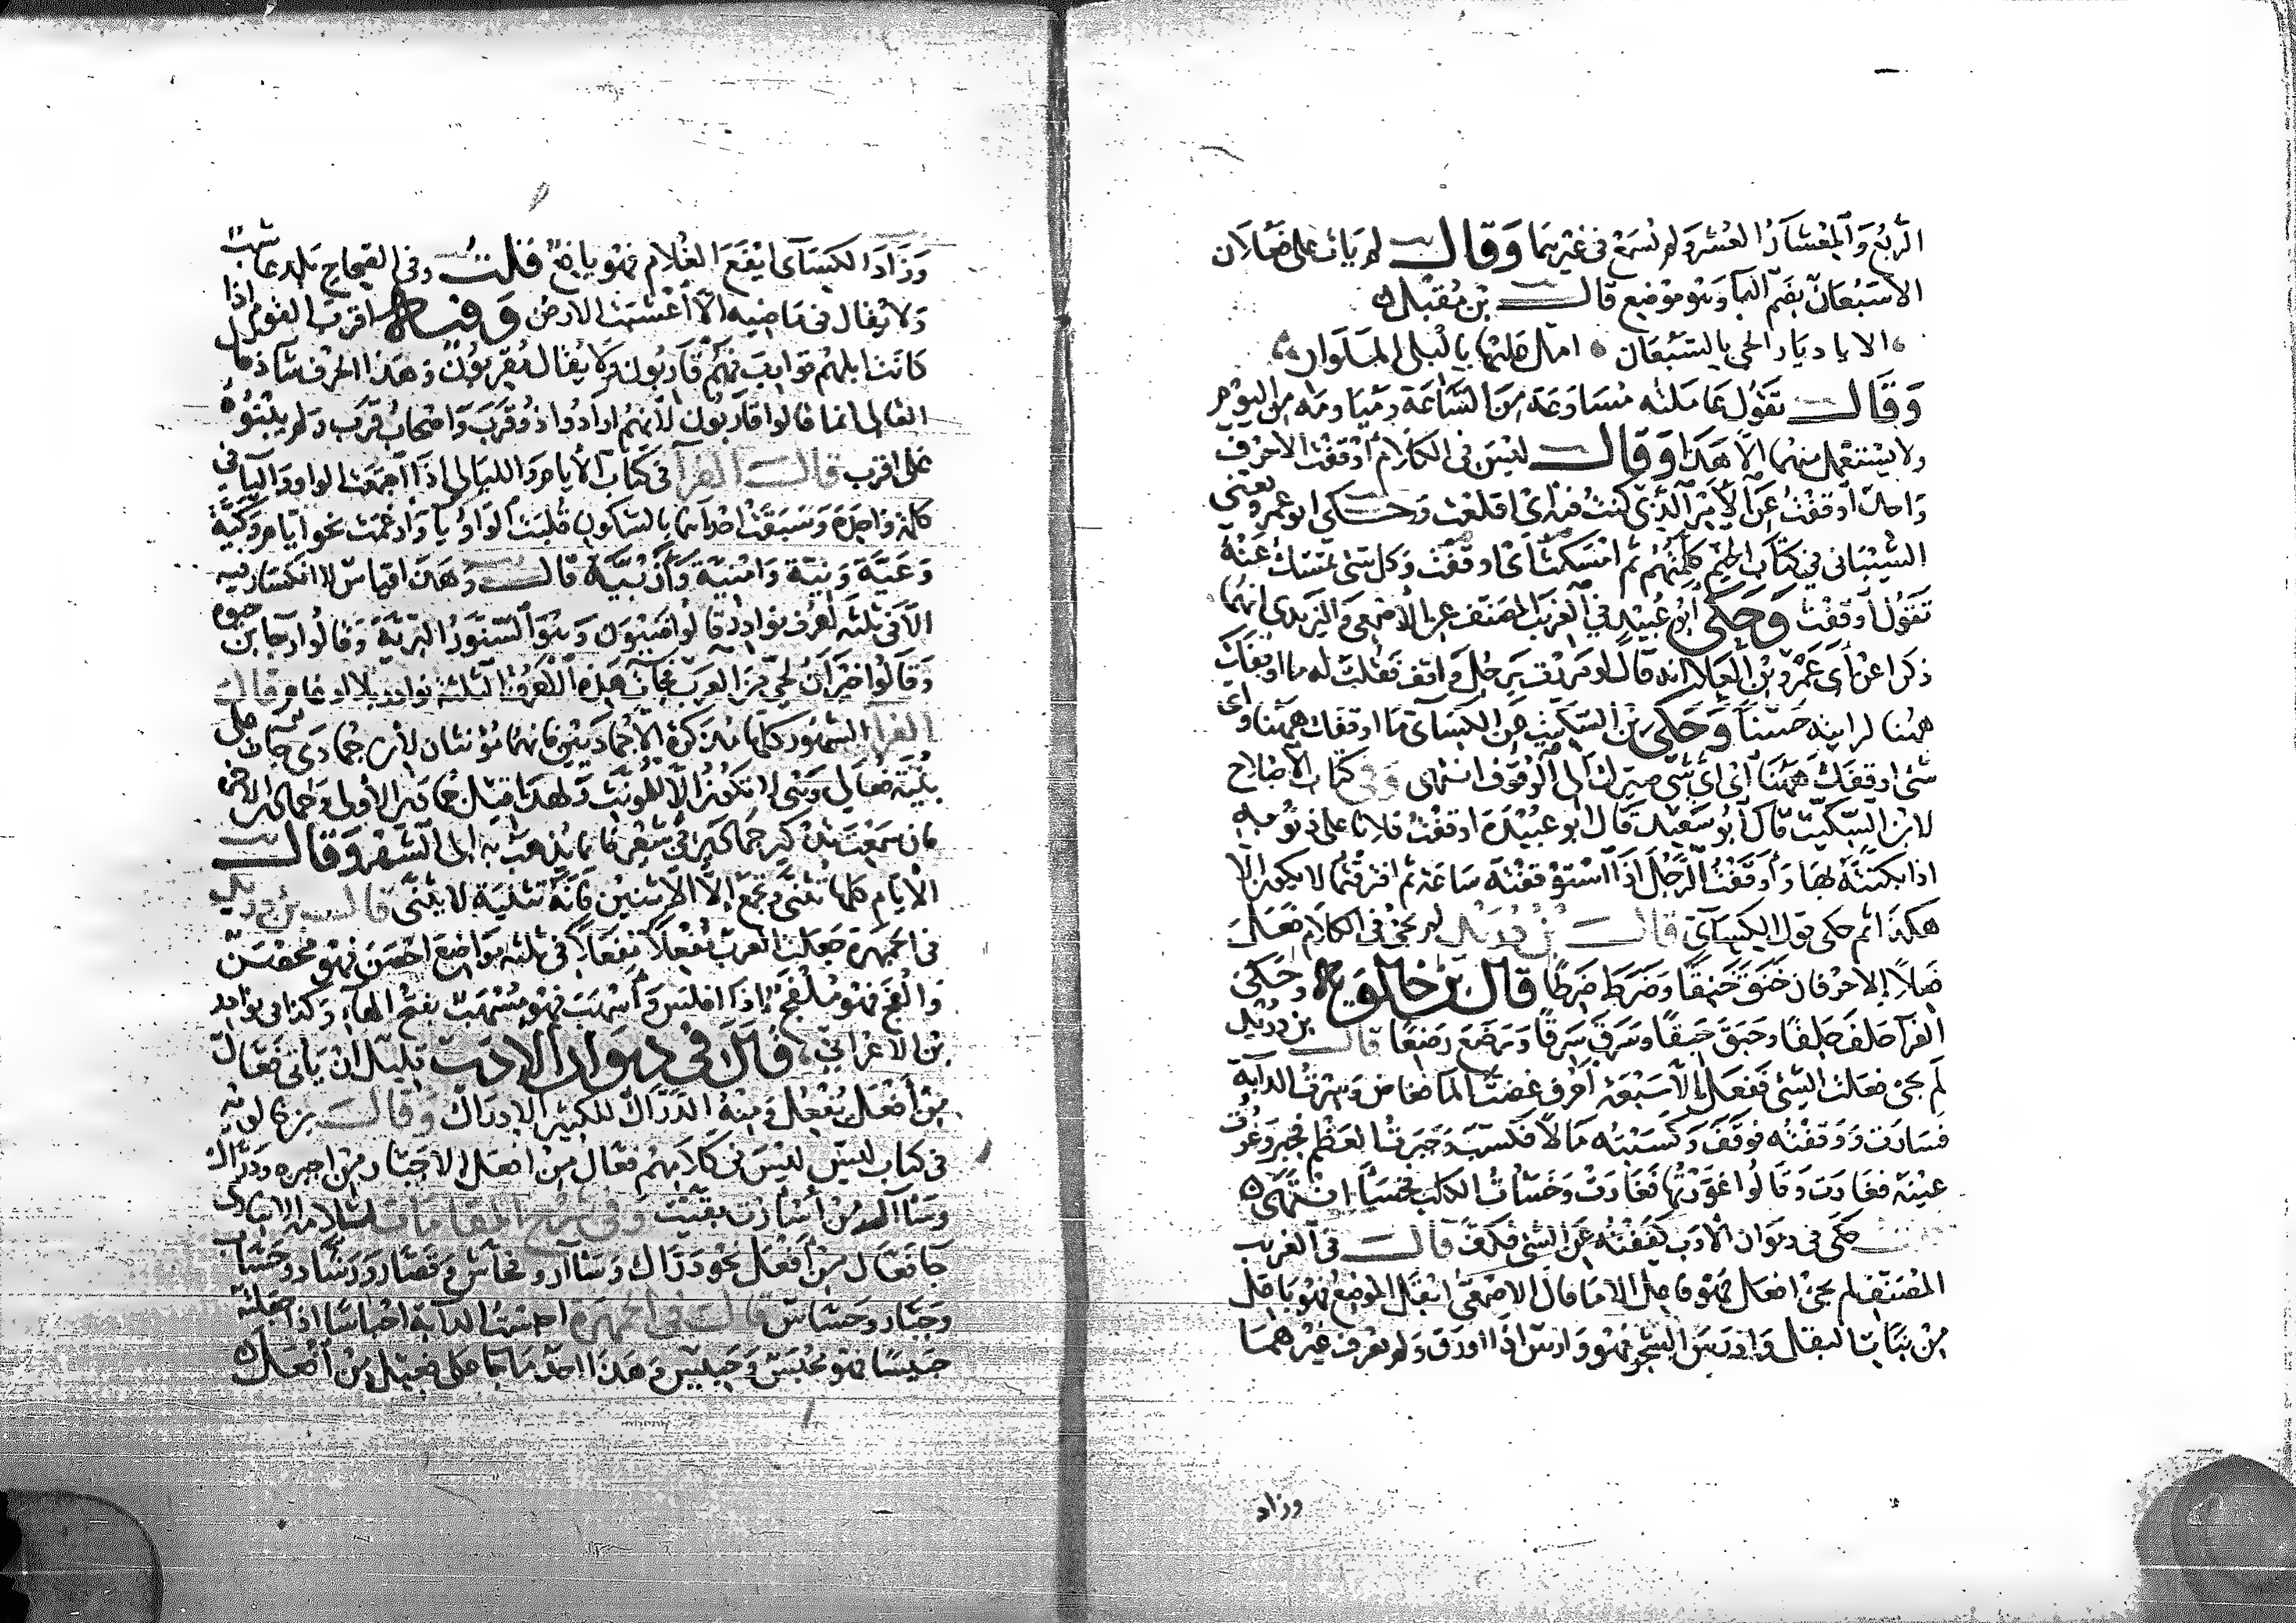 الربع والمعشار العشر ولم يسمع في غيرهما وقال لم يات على فعلان
الا سبعان بضم البا وهو موضع قال بن مقبل
الا يا ديار الحي بالسبعان امل عليها بالبلى الملوان
وقال تقول عاملته مساوعة من الساعة ومياومه من اليوم
ولا يستعمل منهما الا هذا وقال ليس في الكلام اوقفت الا حرف
واحد اوقفت عن الامر الذي كنت فيه اي اقلعت وحكى ابو عمرو يعني
الشيباني في كتاب الجيم كلمتهم ثم امسكت اي اوقفت وكل شي تمسك عنه
تقول اوقفت وحكى ابو عبيد في الغريب المصنف عن الاصمعي واليزيدي انهما
ذكرا عن ابي عمرو بن العلا انه قال لو مررت برجل واقف فقلت له ما اوقفك
ههنا لرايته حسنا وحكى بن السكيت عن الكسآي ما اوقفك ههنا واي
شي اوقفك ههنا اي اي شي صيرك الى الوقوف انتهى وفي كتاب الاصلاح
لابن السكيت قال ابو سعيد قال ابو عبيدة اوقفت فلانا على ذنوبه
اذا بكتته بها واوقفت الرجل اذا استوقفته ساعة ثم افترقتما لا يكون الا
هكذا ثم حكى قول الكسآي قال بن دريد لم يجئ في الكلام فعل
فعلا الا حرفان خنق خنقا وضرط ضرطا قال بن خالويه وحكى
الفرا حلف حلفا وحبق حبقا وسرق سرقا ورضع رضعا قال بن دريد
لم يجئ فعلت الشئ ففعل الا سبعة احرف غضت الما فغاض وسرت الدابة
فسارت ووقفته فوقف وكسبته مالا فكسب وجبرت العظم فجبر وعرت
عينه فعارت وقالوا عورتها فعارت وخسات الكلب فخسا انتهى
حكى في ديوان الادب كففته عن الشئ فكف قال في الغريب
المصنف لم يجئ افعل فهو فاعل الا ما قال الاصمعي ابقل الموضع فهو باقل
من نبات البقل واورس الشجر فهو وارس اذا اورق ولم يعرف غيرهما
وزاد
وزاد الكسآي ايفع الغلام فهو يافع قلت وفي الصحاح بلد عاشب
ولا يقال في ماضيه الا اعشبت الارض وفيه اقرب القوم اذا
كانت ابلهم قوارب فهم قاربون ولا يقال مقربون وهذا الحرف شاذ قال
الفالي انما قالوا قاربون لانهم ارادوا ذو قرب واصحاب قرب ولم يبنوه
على اقرب قال الفرآ في كتاب الايام والليالي اذا اجتمعت الواو واليآ في
كلمة واحدة وسبقت احداهما بالسكون قلبت الواو يآ وادغمت نحو ايام وكية
وغية ونية وامنية وارنية قال وهذا قياس لا انكسار فيه
الا في ثلثة احرف نوادر قالوا ضيون وهو السنور البرية وقالوا رجا بن حيوه
وقالوا خيوان لحي من العرب فجآت هذه الاحرف الثلثة نوادر بلا ادغام وقال
الفرا الشهور كلها مذكرة الا جماديين فانهما مؤنثان لان جمادى جات على
بنية فعالى وهي لا تكون الا للمؤنث ولهذا قيل جمادى الاولى وجمادى الاخرى
فان سمعت تذكير جمادى في شعر فانما يذهب به الى الشهر وقال
الايام كلها تثنى وتجمع الا الاثنين فانه تثنية لا يثنى قال بن دريد
في الجمهرة جعلت العرب مفعلا مفعلا في ثلثة مواضع احصن فهو محصن
والفج فهو ملفج اذا افلس واسهب فهو مسهب بفتح الهآ وكذا في نوادر
بن الاعرابي قال في ديوان الادب قليل ان ياتي فعال
من افعل يفعل ومنه الدراك للكثير الادراك وقال بن خالويه
في كتاب ليس ليس في كلامهم فعال من افعل الا جبار من اجبره ودراك
وسآر من اسارت بقيت وفي شرح المقامات لسلامه الانباري
جآ فعال من افعل نحو دراك وسآار وفحاش وقصار ورشاد وحساس
وجبار وحساس قال في الجمهرة احبست الدابة احباسا اذا جعلته
حبيسا فهو محبس وحبيس وهذا احد ما جا على فعيل من افعل